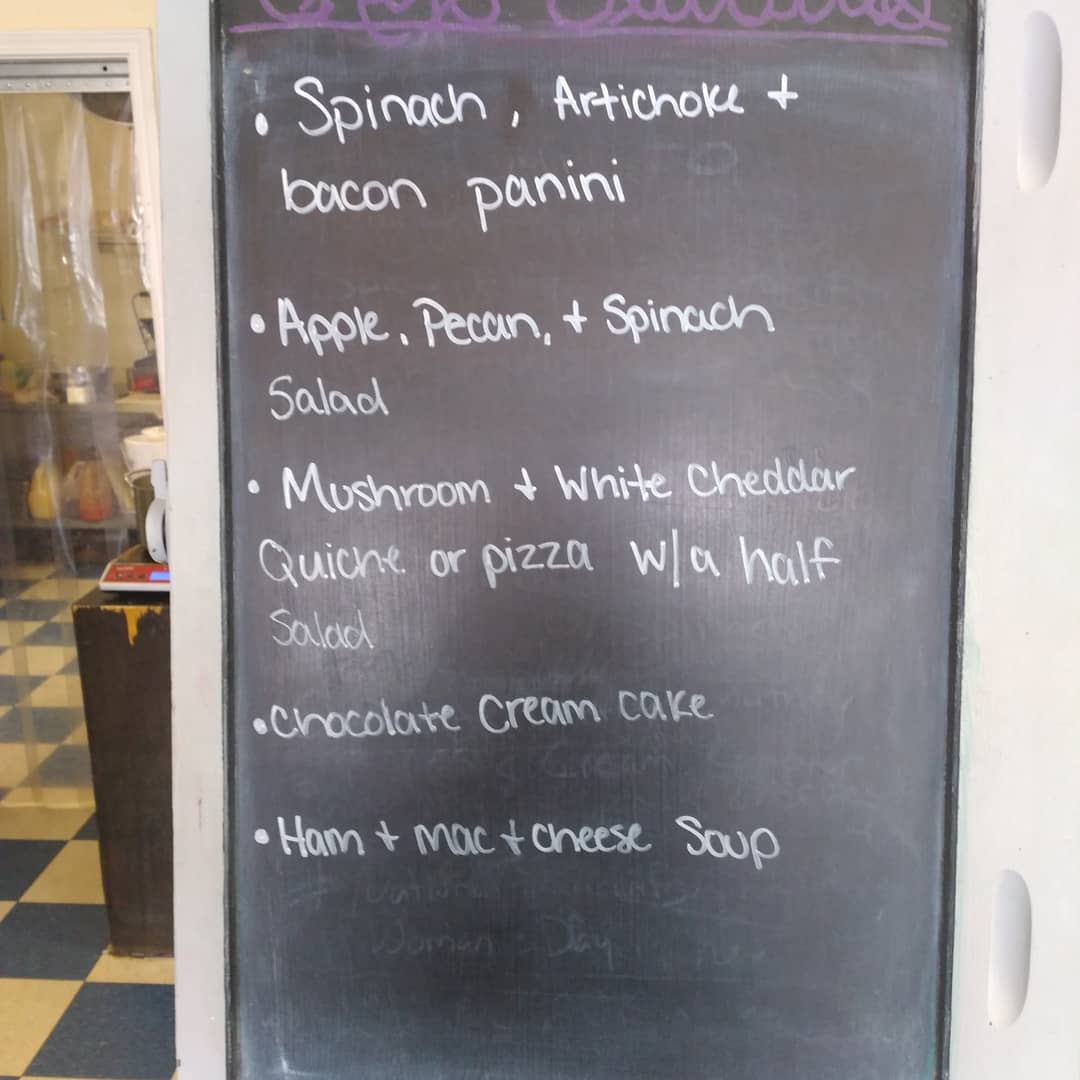 • Spinach, Artichoke +
bacon panini
• Apple, Pecan, + Spinach
Salad
• Mushroom + White Cheddar
Quiche or pizza w/a half
Salad
• Chocolate Cream cake
Cream
• Ham + mac + cheese Soup
Woman Day